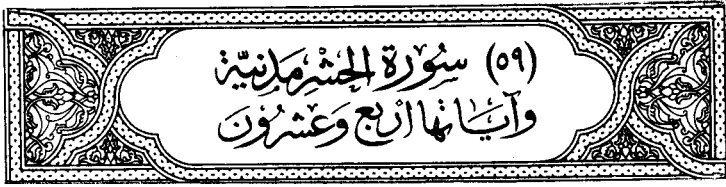 (٥٩) سُورَة الحَشْرِ مَدَنِيَّة
وَآيَاتُهَا أَرْبَع وَعِشْرُونَ